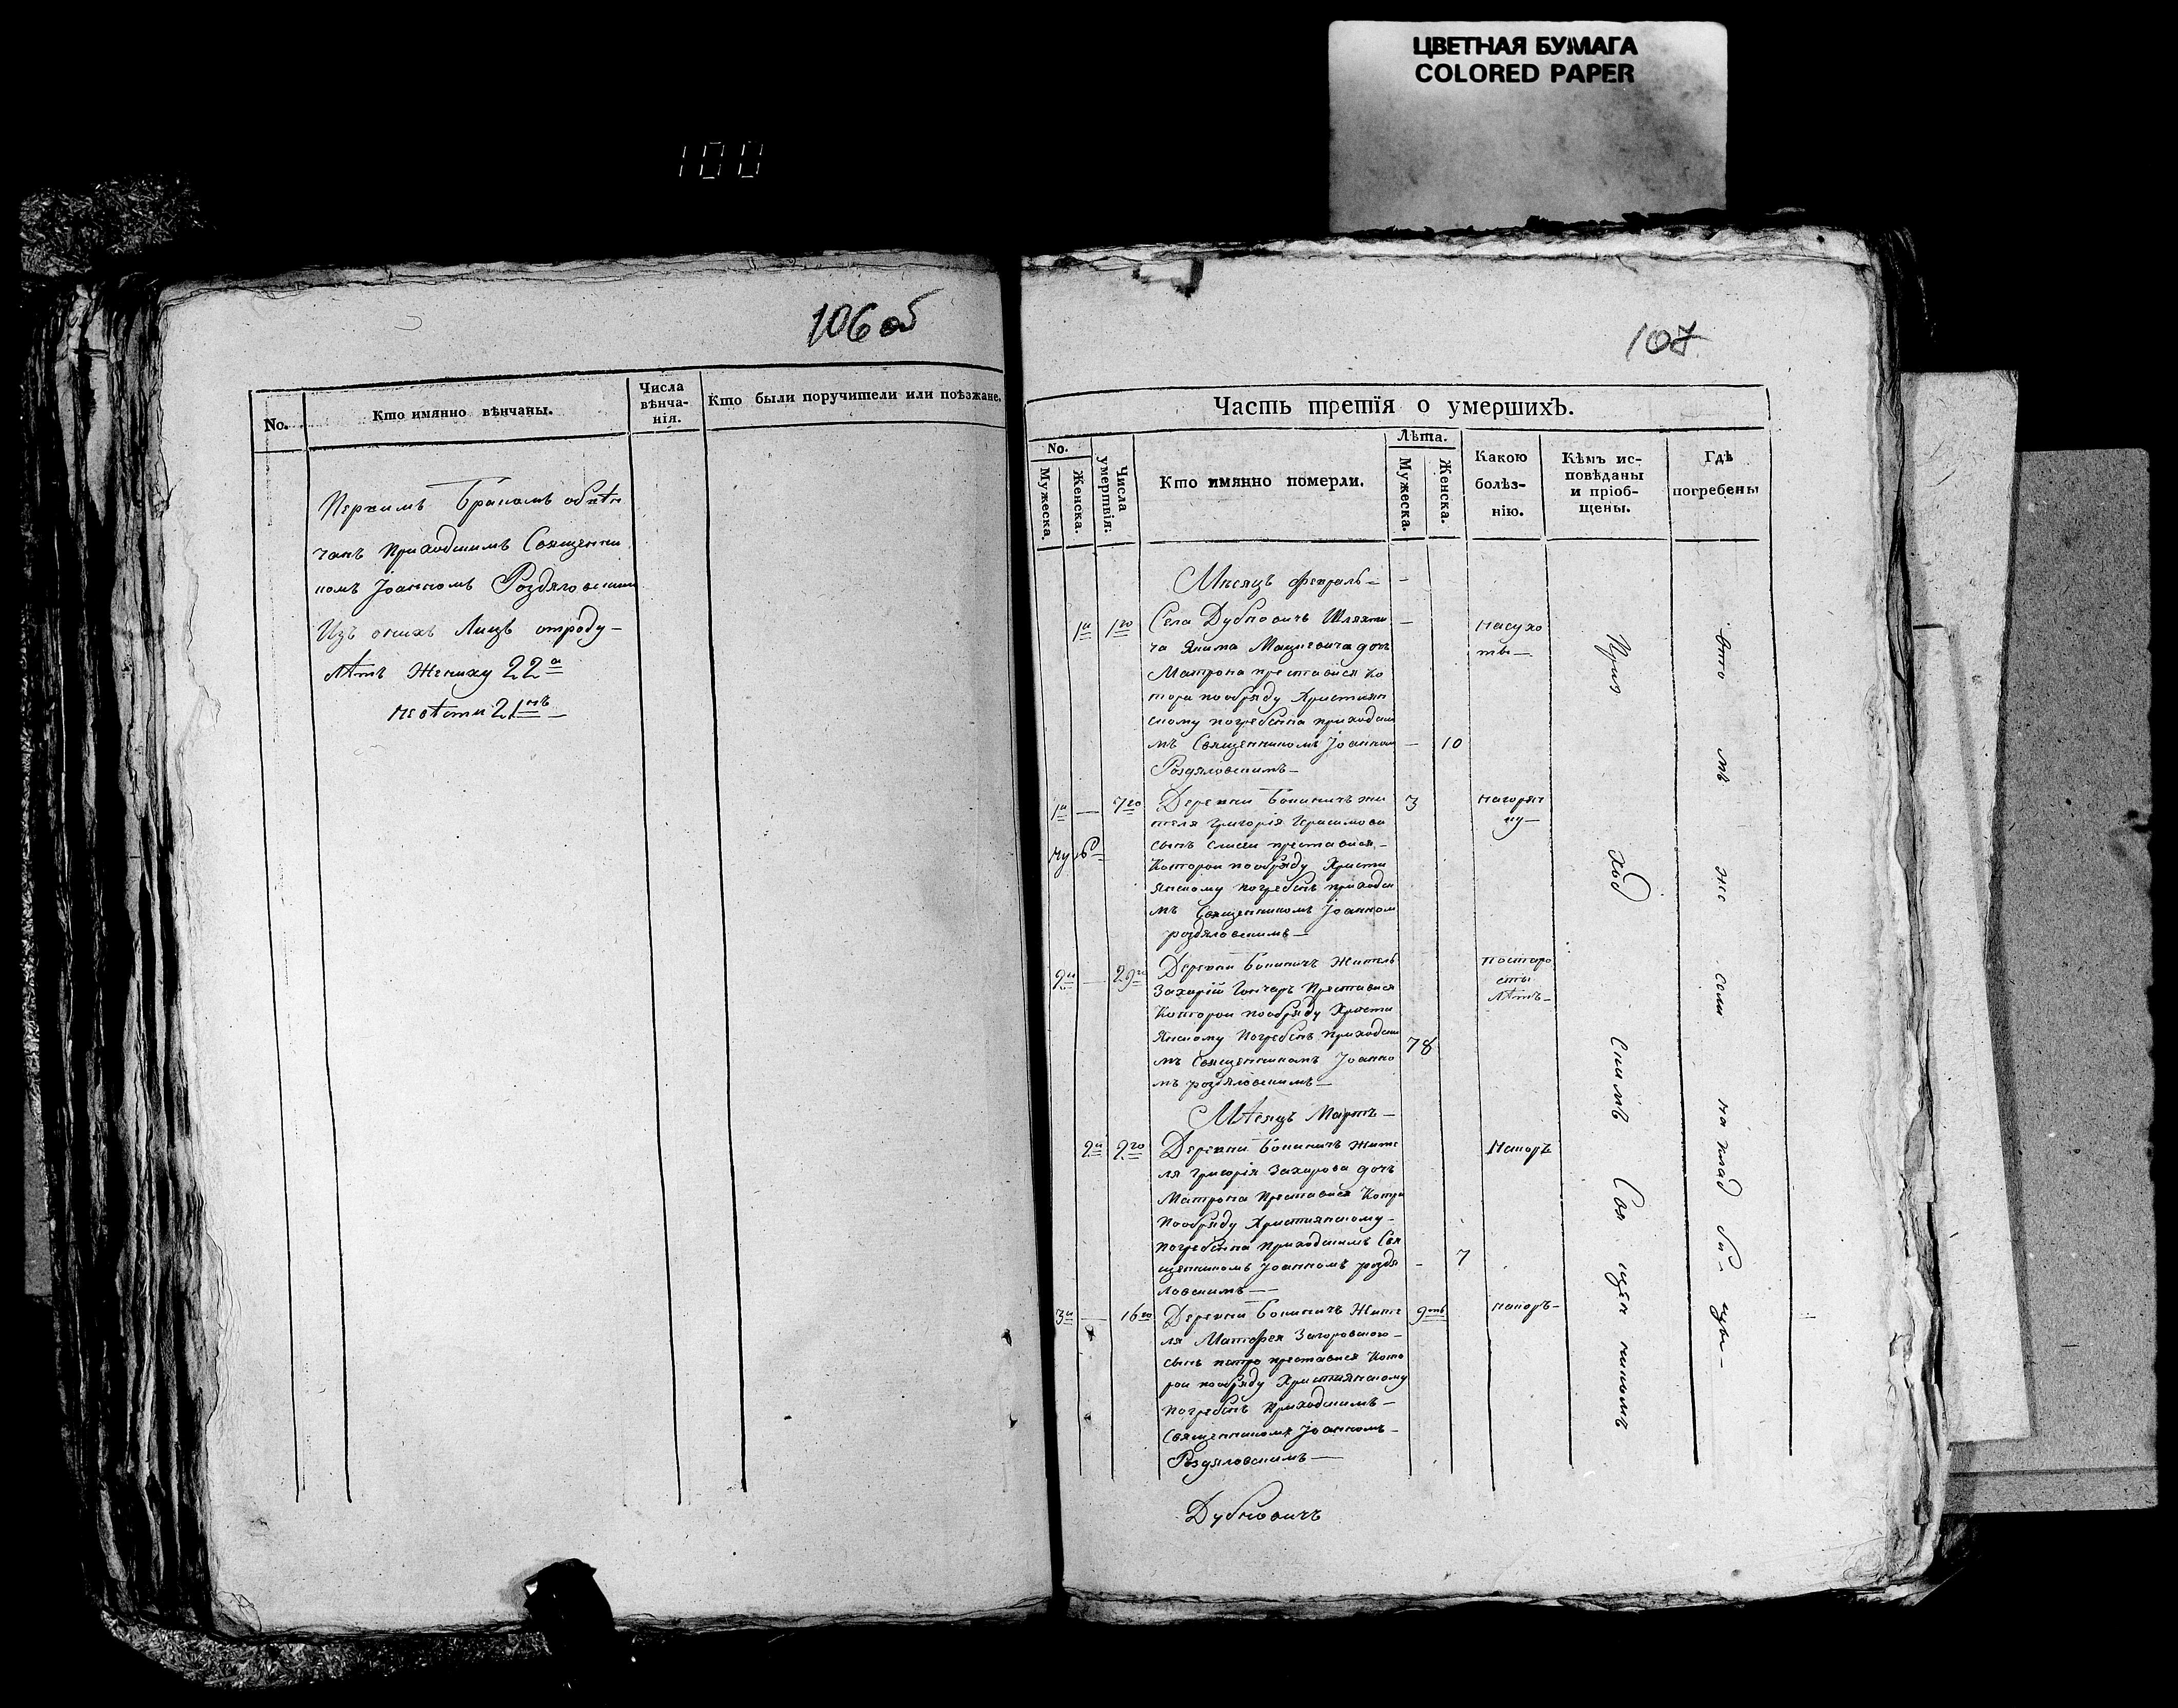 ЦВЕТНАЯ БУМАГА
COLORED PAPER
100
106 об
No.
Кто имянно вѣнчаны.
Числа вѣнча-нія.
Кто были поручители или поѣзжане.
Первимъ Бракомъ обвѣн
чанъ приходскимъ Священни
комъ Іоанномъ Роздяловским
Изъ оныхъ Лицъ отроду –
лѣтъ Жениху 22а
невѣсти 21
107
Часть третія о умершихъ.
No.
Мужеска.
Женска.
Числа умертвія:
Кто имянно померли.
Лѣта.
Мужеска.
Женска.
Какою болѣз-нію.
Кѣмъ ис-повѣданы и пріоб-щены.
Гдѣ погребены
Мѣсяцъ февраль –
1а 1го Села Дубновичъ Шляхти – насухо
ча Якима Мацкевича дочъ ты –
Матрона преставися ко
тора пообряду Християн
скому погребѣна приходски
мъ Священникомъ Іоанном – 10
Роздяловскимъ –
1а — 7го Деревни Бокиничъ жи 3 нагоряч
теля Григорія Герасимова ку –
сынъ преставися –
которои пообряду Христи
янскому погребѣнъ приходски
мъ Священникомъ Іоанном
роздяловскимъ –
2и — 29го Деревни Бокиничъ Житель постаро
Захарій Гончаръ Преставися сты
Которои пообряду Христи лѣтъ –
янскому Погребѣнъ приходски
мъ Священникомъ Іоанно 78
мъ роздяловскимъ –
Мѣсяцъ Мартъ –
2и 2го Деревни Бокиничъ жите Накоръ
ля Григорія Захарова дочъ
Матрона Преставися Котра
Пообряду Християнскому –
погребѣна Приходскимъ Свя
щенникомъ Іоанномъ роздя – 7
ловскимъ –
3и — 16го Деревни Бокиничъ Жите 9 накоръ –
ля Матфея Загоровского –
сынъ петро преставися Кото
рои пообряду Християнскому
погребѣнъ Приходскимъ –
Священникомъ Іоанномъ –
Роздяловскимъ —
Дубновичъ
Прих
ход
скимъ
Свя
щен
никомъ
вто
мъ
же
сели
на клад
би –
щи –